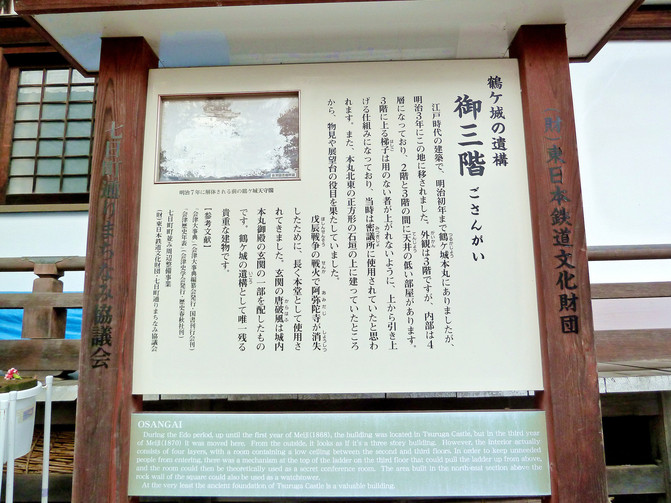 鶴ケ城の遺構
御三階 ごさんがい
江戸時代の建築で、明治初年まで鶴ケ城本丸にありましたが、
明治3年にこの地に移されました。外観は3階ですが、内部は4
層になっており、2階と3階の間に天井の低い部屋があります。
3階に上る梯子は用のない者が上がれないように、上から引き上
げる仕組みになっており、当時は密議所に使用されていたと思わ
れます。また、本丸北東の正方形の石垣の上に建っていたところ
から、物見や展望台の役目を果たしていました。
戊辰戦争の戦火で阿弥陀寺が消失
したために、長く本堂として使用さ
れてきました。玄関の唐破風は城内
本丸御殿の玄関の一部を配したもの
です。鶴ケ城の遺構として唯一残る
貴重な建物です。
【参考文献】
七日町町並み周辺整備事業
(財)東日本鉄道文化財団・七日町通りまちなみ協議会
明治7年に解体される前の鶴ケ城天守閣
(財)東日本鉄道文化財団
七日町通りまちなみ協議会
OSANGAI
During the Edo period, up until the first year of Meiji(1868), the building was located in Tsuruga Castle, but in the third year
of Meiji(1870) it was moved here. From the outside, it looks as if it's a three story building. However, the interior actually
consists of four layers, with a room containing a low ceiling between the second and third floors. In order to keep unneeded
people from entering, there was a mechanism at the top of the ladder on the third floor that could pull the ladder up from above,
and the room could then be theoretically used as a secret conference room. The area built in the north-east section above the
rock wall of the square could also be used as a watchtower.
At the very least the ancient foundation of Tsuruga Castle is a valuable building.